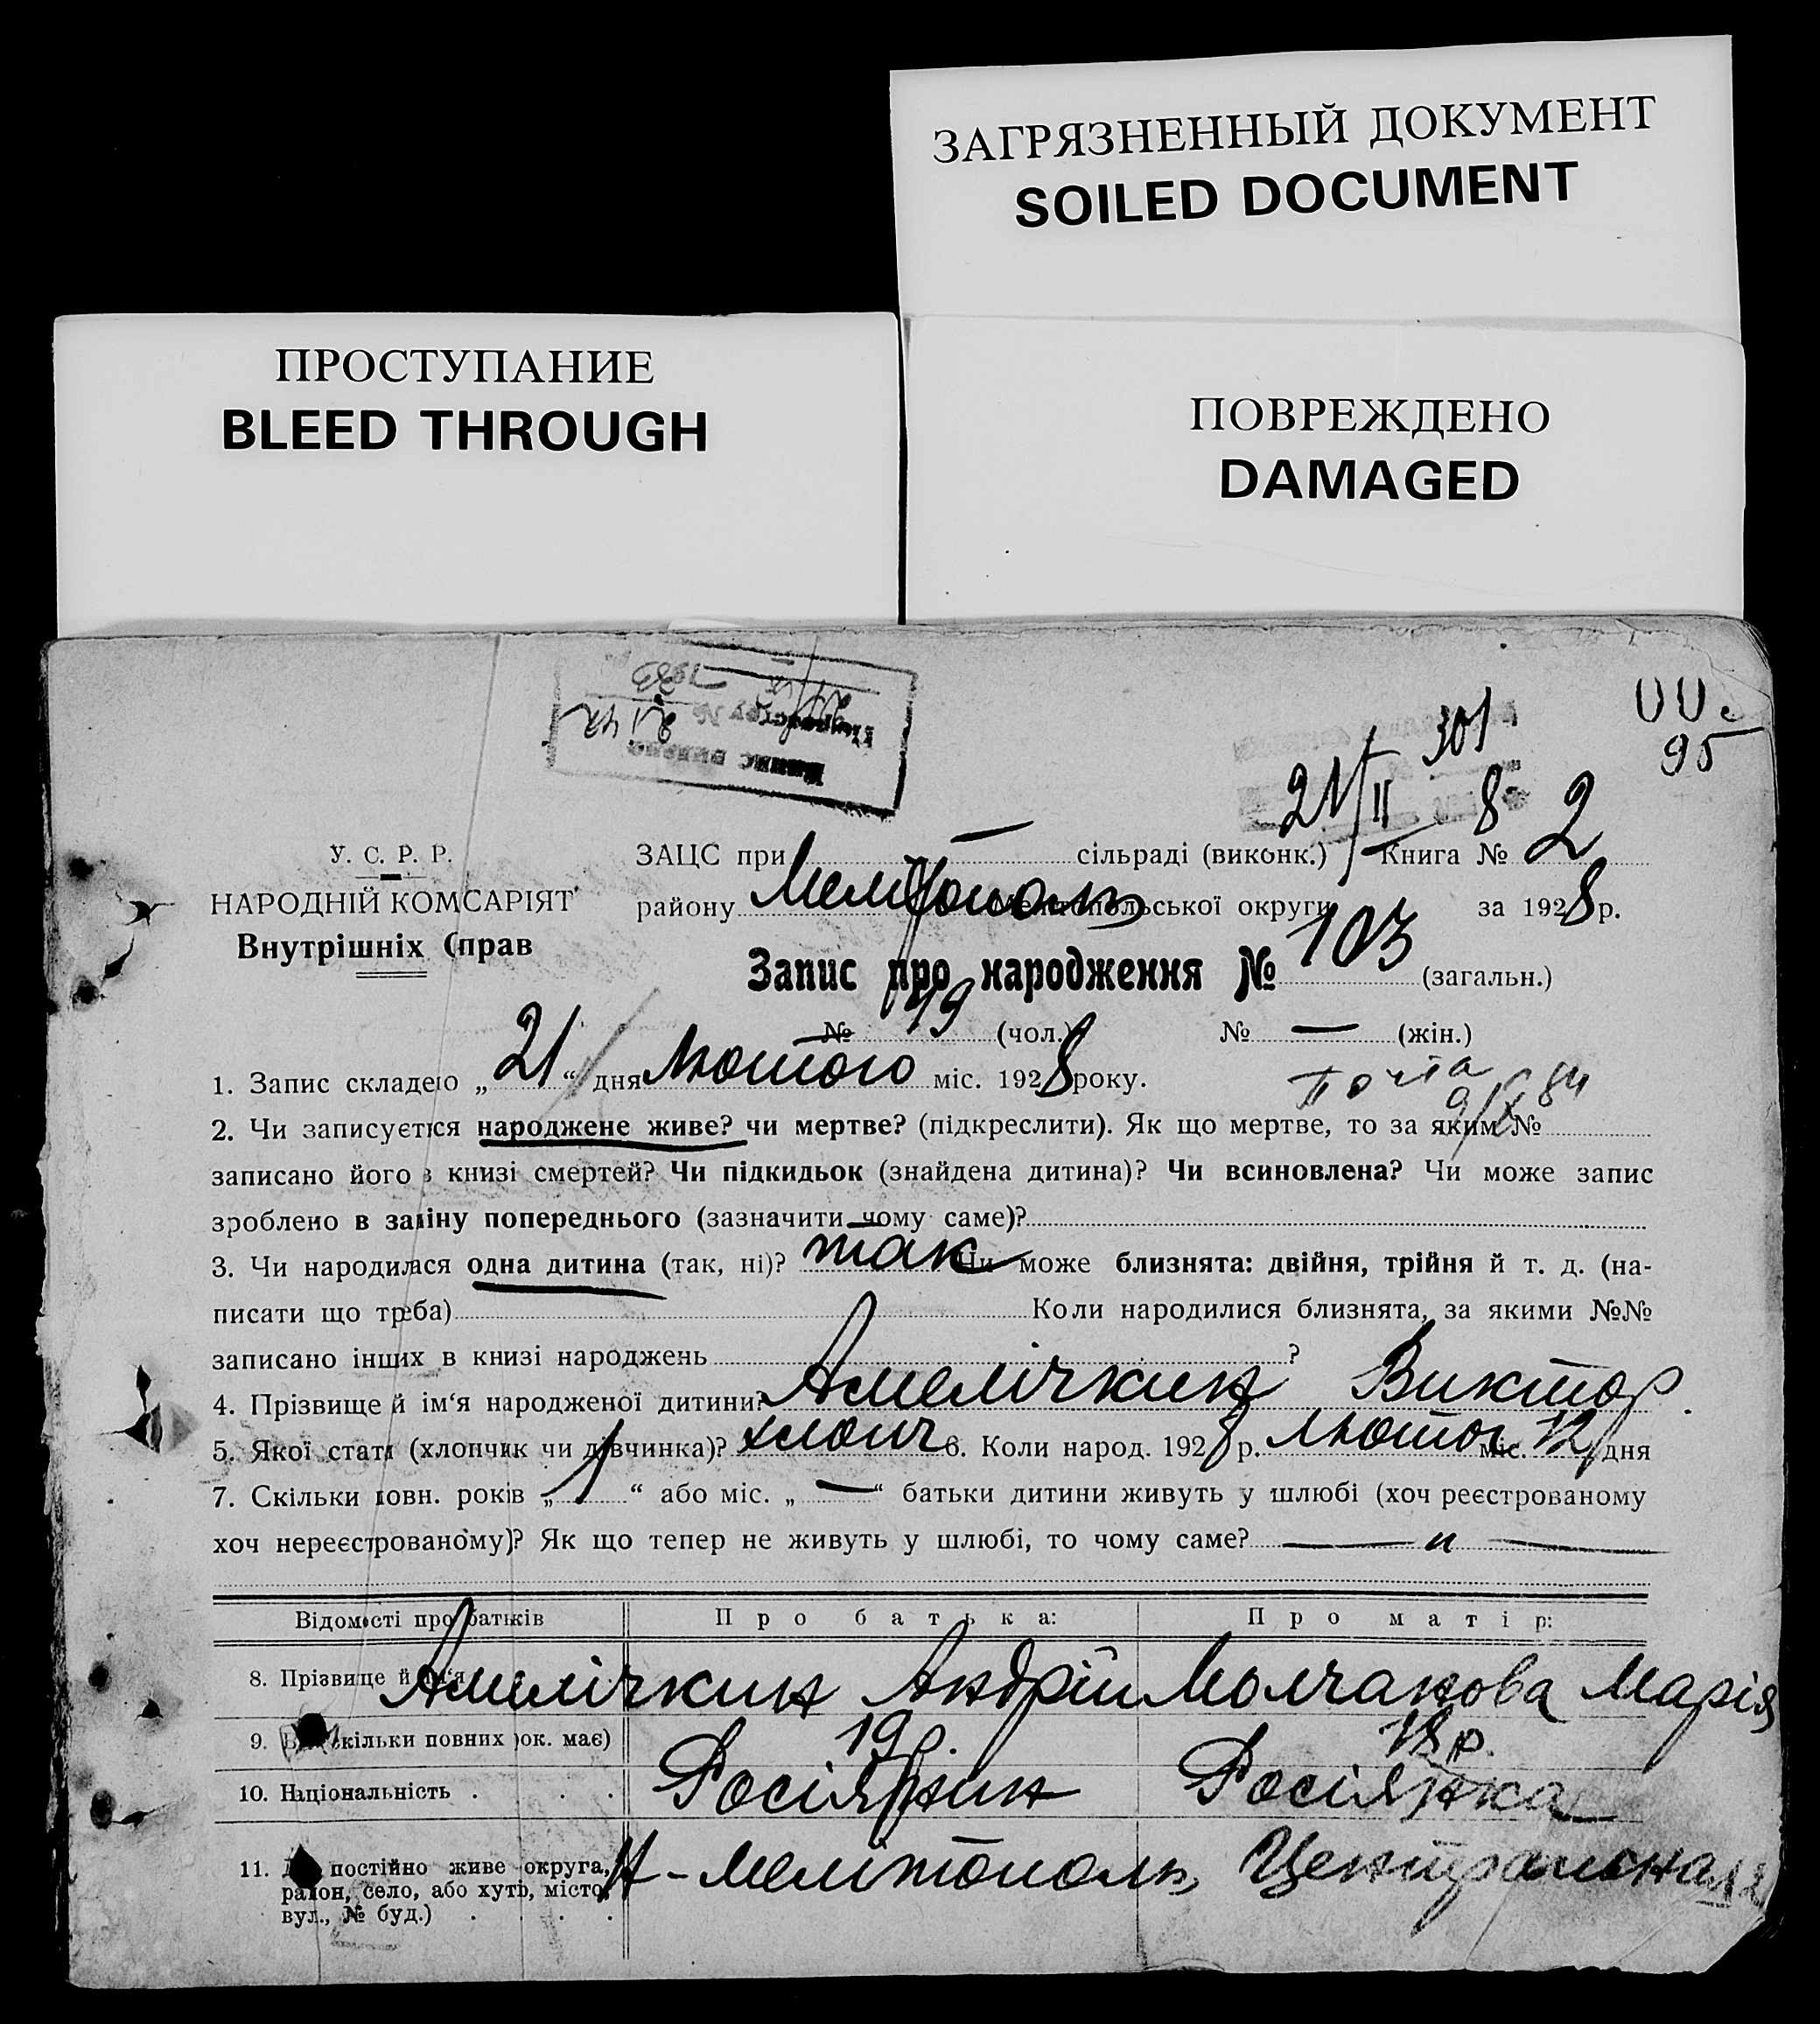 ЗАГРЯЗНЕННЫЙ ДОКУМЕНТ
SOILED DOCUMENT
ПРОСТУПАНИЕ
BLEED THROUGH
ПОВРЕЖДЕНО
DAMAGED
301
95
21/II 8
У. С. Р. Р.
НАРОДНІЙ КОМСАРІЯТ
Внутрішніх Справ
ЗАЦС при — сільраді (виконк.) Книга № 2
району Мелітополь Мелітопольської округи за 1928 р.
Запис про народження № 103 (загальн.)
№ 49 (чол.) № — (жін.)
1. Запис складено „21“ дня Лютого міс. 1928 року.
почта
2. Чи записується народжене живе? чи мертве? (підкреслити). Як що мертве, то за яким №
записано його в книзі смертей? Чи підкидьок (знайдена дитина)? Чи всиновлена? Чи може запис
зроблено в заміну попереднього (зазначити чому саме)?
3. Чи народилася одна дитина (так, ні)? так Чи може близнята: двійня, трійня й т. д. (на-
писати що треба) Коли народилися близнята, за якими №№
записано інших в книзі народжень ?
4. Прізвище й ім‘я народженої дитини? Амелічкин Виктор
5. Якої статі (хлопчик чи дівчинка)? хлопч 6. Коли народ. 1928 р. Лютог міс. 12 дня
7. Скільки повн. років „1“ або міс. „—“ батьки дитини живуть у шлюбі (хоч реєстрованому
хоч нереєстрованому)? Як що тепер не живуть у шлюбі, то чому саме? — „ —
Відомості про батьків Про батька: Про матір:
8. Прізвище й ім‘я Амелічкин Андрій Молчанова Марія
9. (скільки повних рок. має) 19 р. 18 р.
10. Національність . . . . Росіянин Росіянка
11. постійно живе округа,
район, село, або хутір, місто,
вул., № буд.) . . . . Н-Мелітополь, Центральна 12